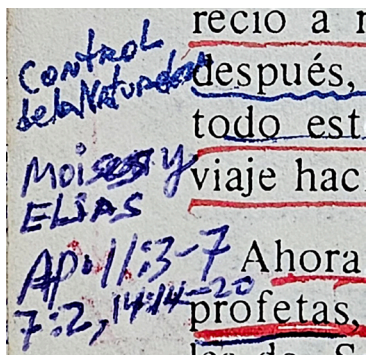 Control
de la Naturaleza
Moises y
ELIAS
AP. 11:3-7
7:2, 14:14-20
reció a
después,
todo est
viaje hac
Ahora
profetas,